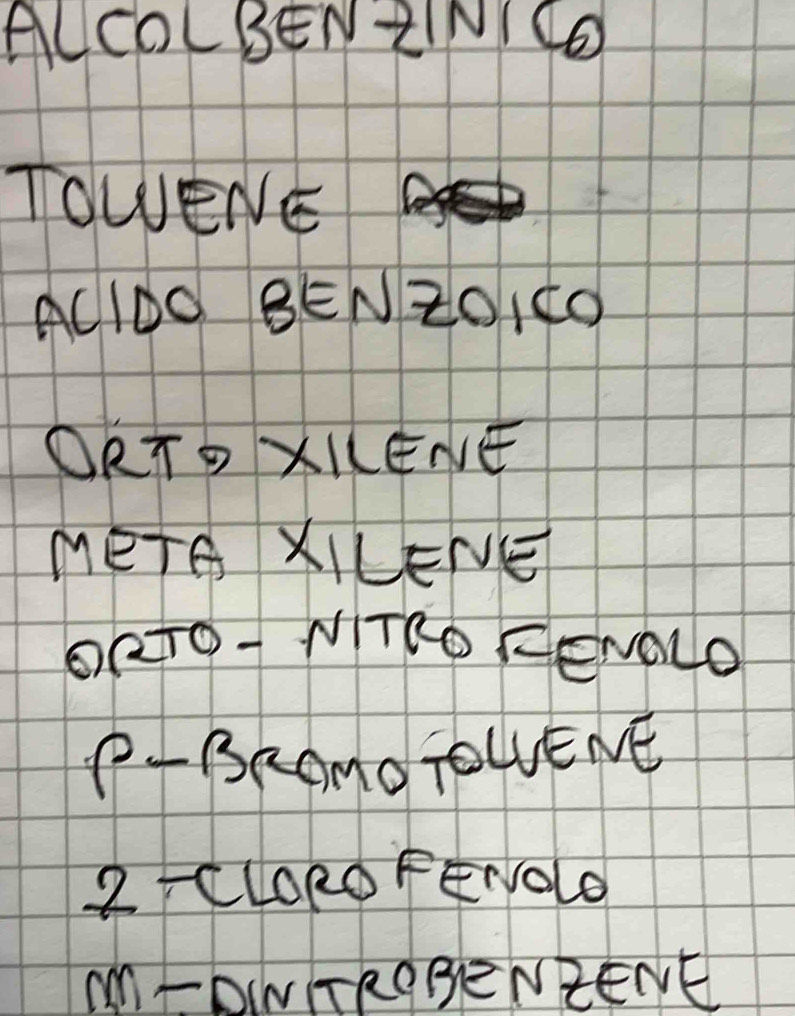 ALCOL BENZINICO
TOLUENE
ACIDO BENZOICO
ORTO XILENE
META XILENE
ORTO - NITRO FENOLO
P - BROMO TOLUENE
2 - CLORO FENOLO
m - DINITROBENZENE